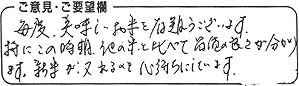 ご意見・ご要望欄
毎度、美味しいお米を有難うございます。
特にこの時期、他の米と比べて品質の良さが分かり
ます。新米が又来るのを心待ちにしています。